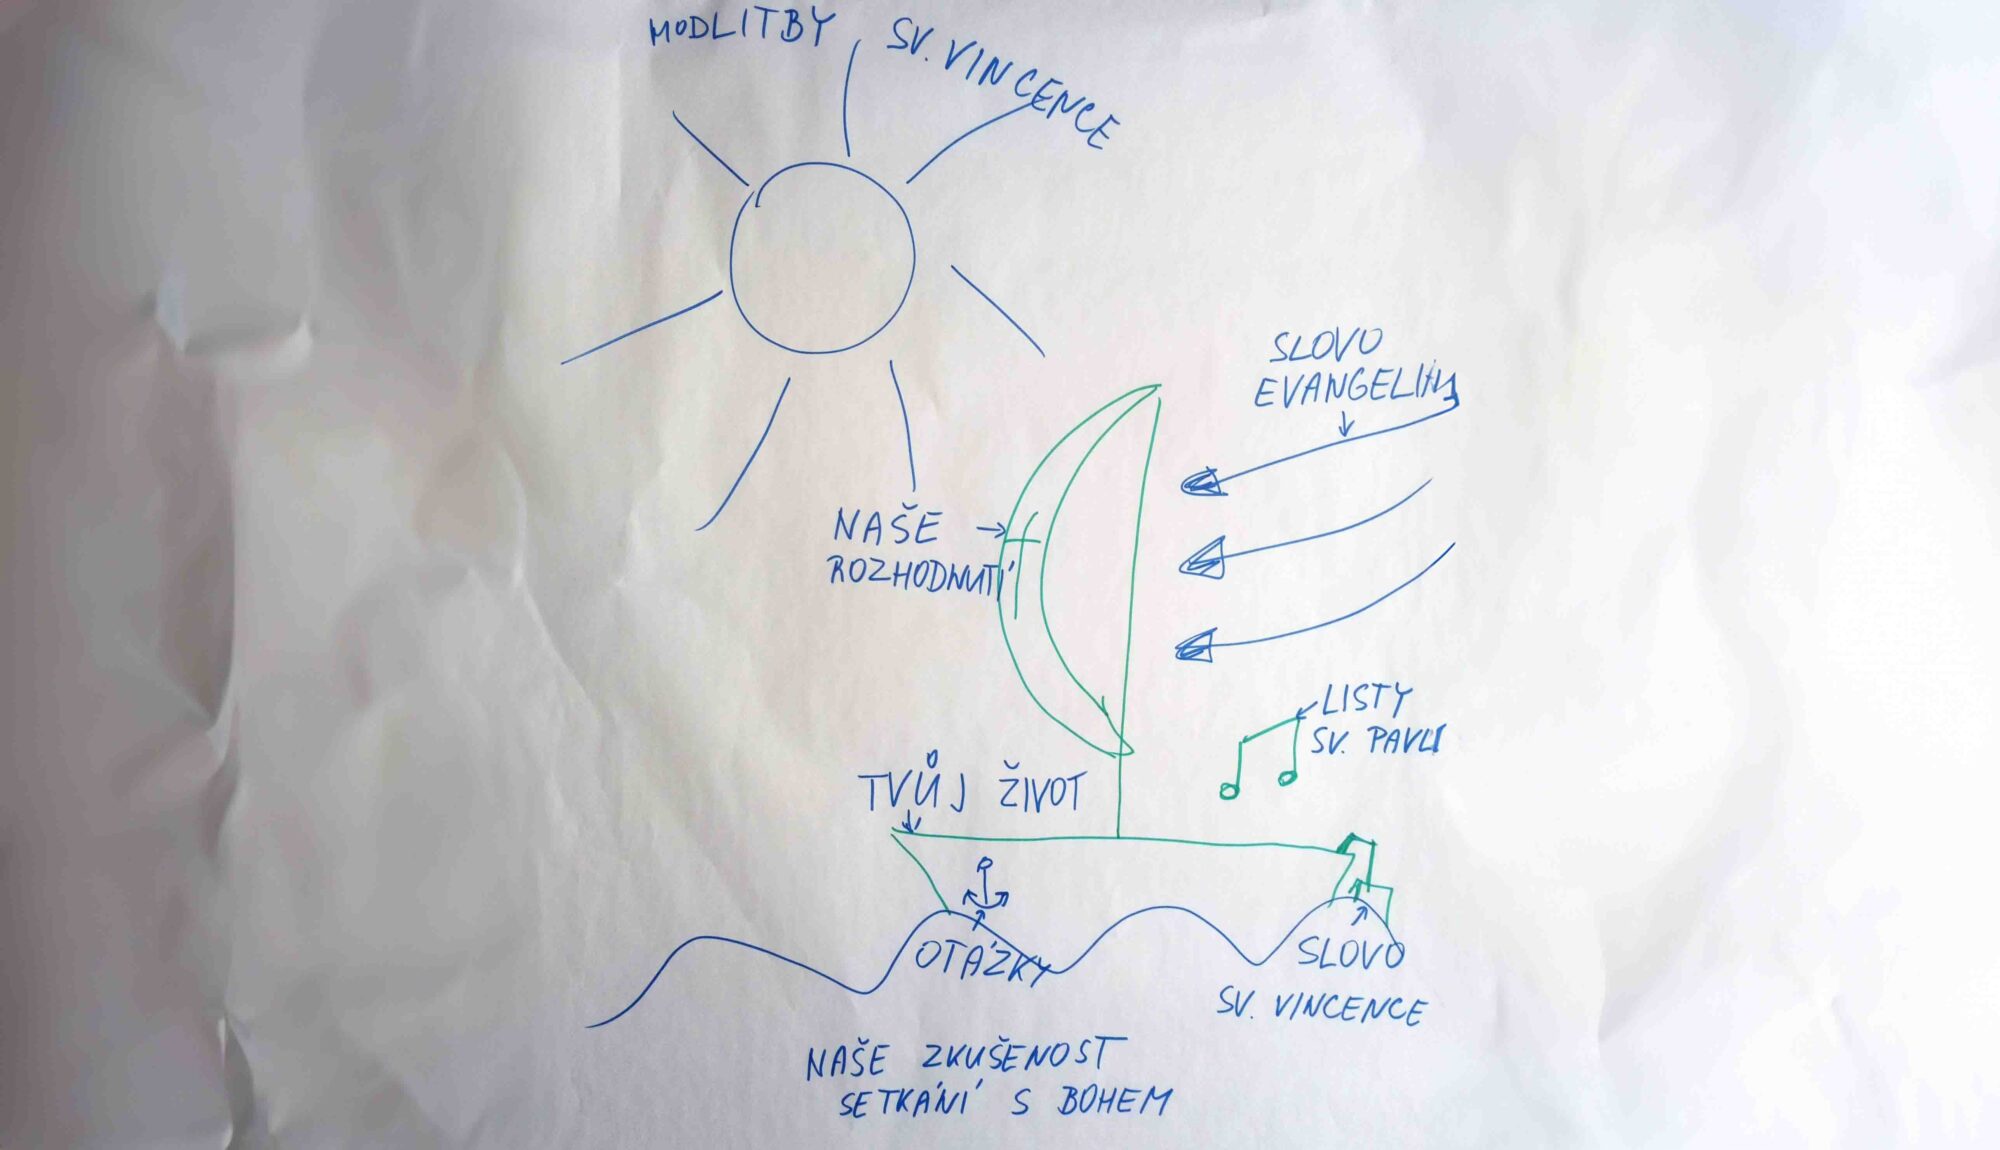 MODLITBY SV. VINCENCE
SLOVO
EVANGELIA
NAŠE
ROZHODNUTÍ
LISTY
SV. PAVLA
TVŮJ ŽIVOT
OTÁZKY
SLOVO
SV. VINCENCE
NAŠE ZKUŠENOST
SETKÁNÍ S BOHEM